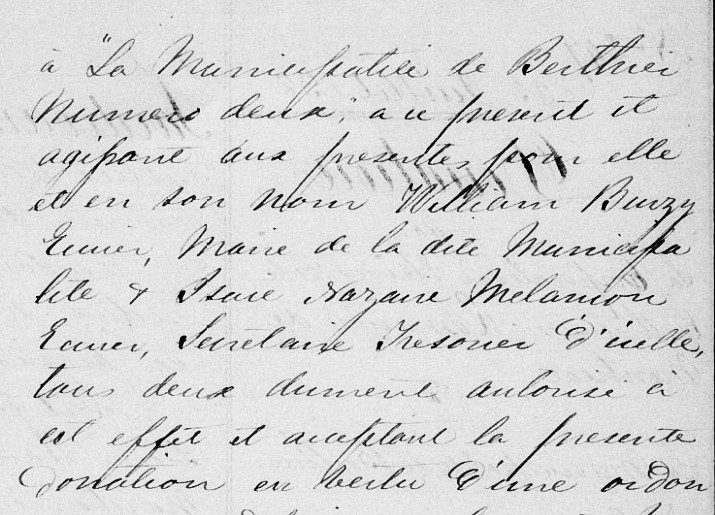 à "La Municipalité de Berthier
Numero deux", a ce present et
agissant aux presentes, pour elle
et en son nom William
Ecuier, Maire de la dite Municipa
lite & Isaie Nazaire Melancon
Ecuier, Secretaire Tresorier d'icelle,
tous deux dument autorise a
cet effet et acceptant la presente
Donation en vertu d'une ordon